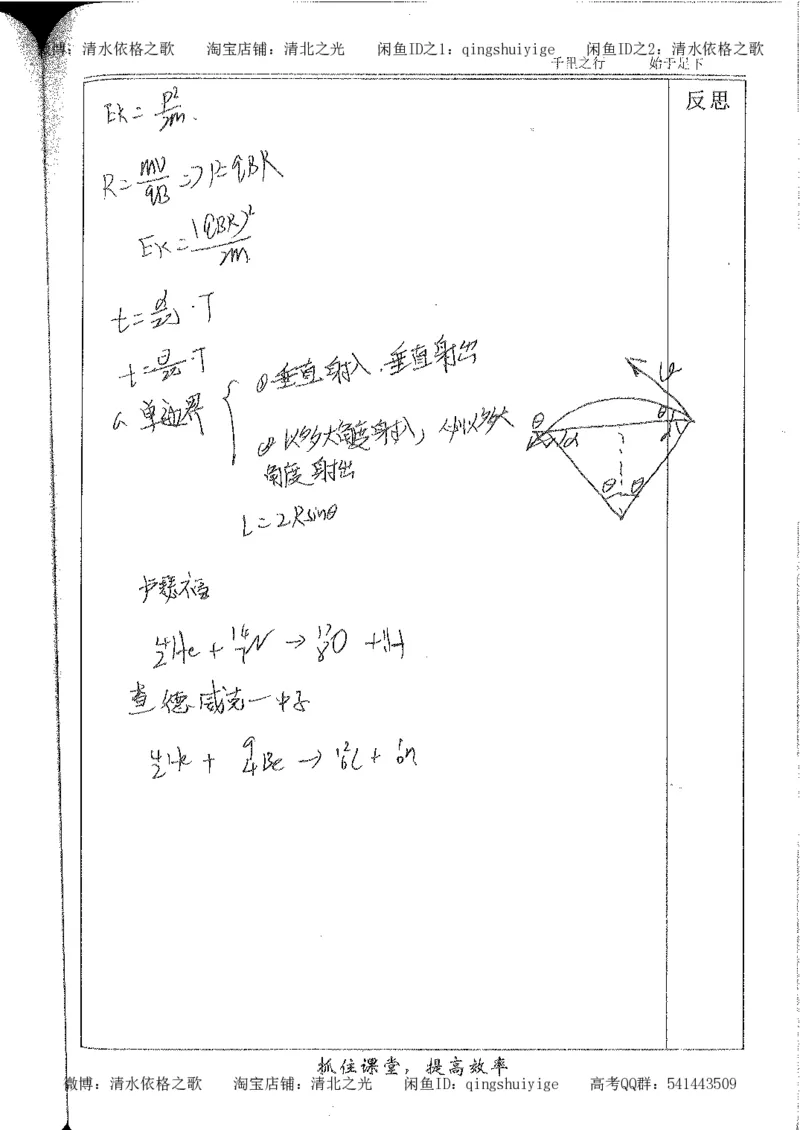 微博: 清水依格之歌 淘宝店铺: 清北之光 闲鱼ID之1: qingshuiyige 闲鱼ID之2: 清水依格之歌
千里之行 始于足下
反思
Ek = p²/2m.
R = mv/qB ⇒ p = qBR
Ek = (qBR)²/2m
t = α/2π · T
t = θ/2π · T
单边界 { ① 垂直射入, 垂直射出
② 以多大角度射入, 则以多大
角度射出
L = 2Rsinθ
v
θ θ
α α
θ θ
卢瑟福
⁴₂He + ¹⁴₇N → ¹⁷₈O + ¹₁H
查德威克—中子
⁴₂He + ⁹₄Be → ¹²₆C + ¹₀n
抓住课堂，提高效率
微博: 清水依格之歌 淘宝店铺: 清北之光 闲鱼ID: qingshuiyige 高考QQ群: 541443509